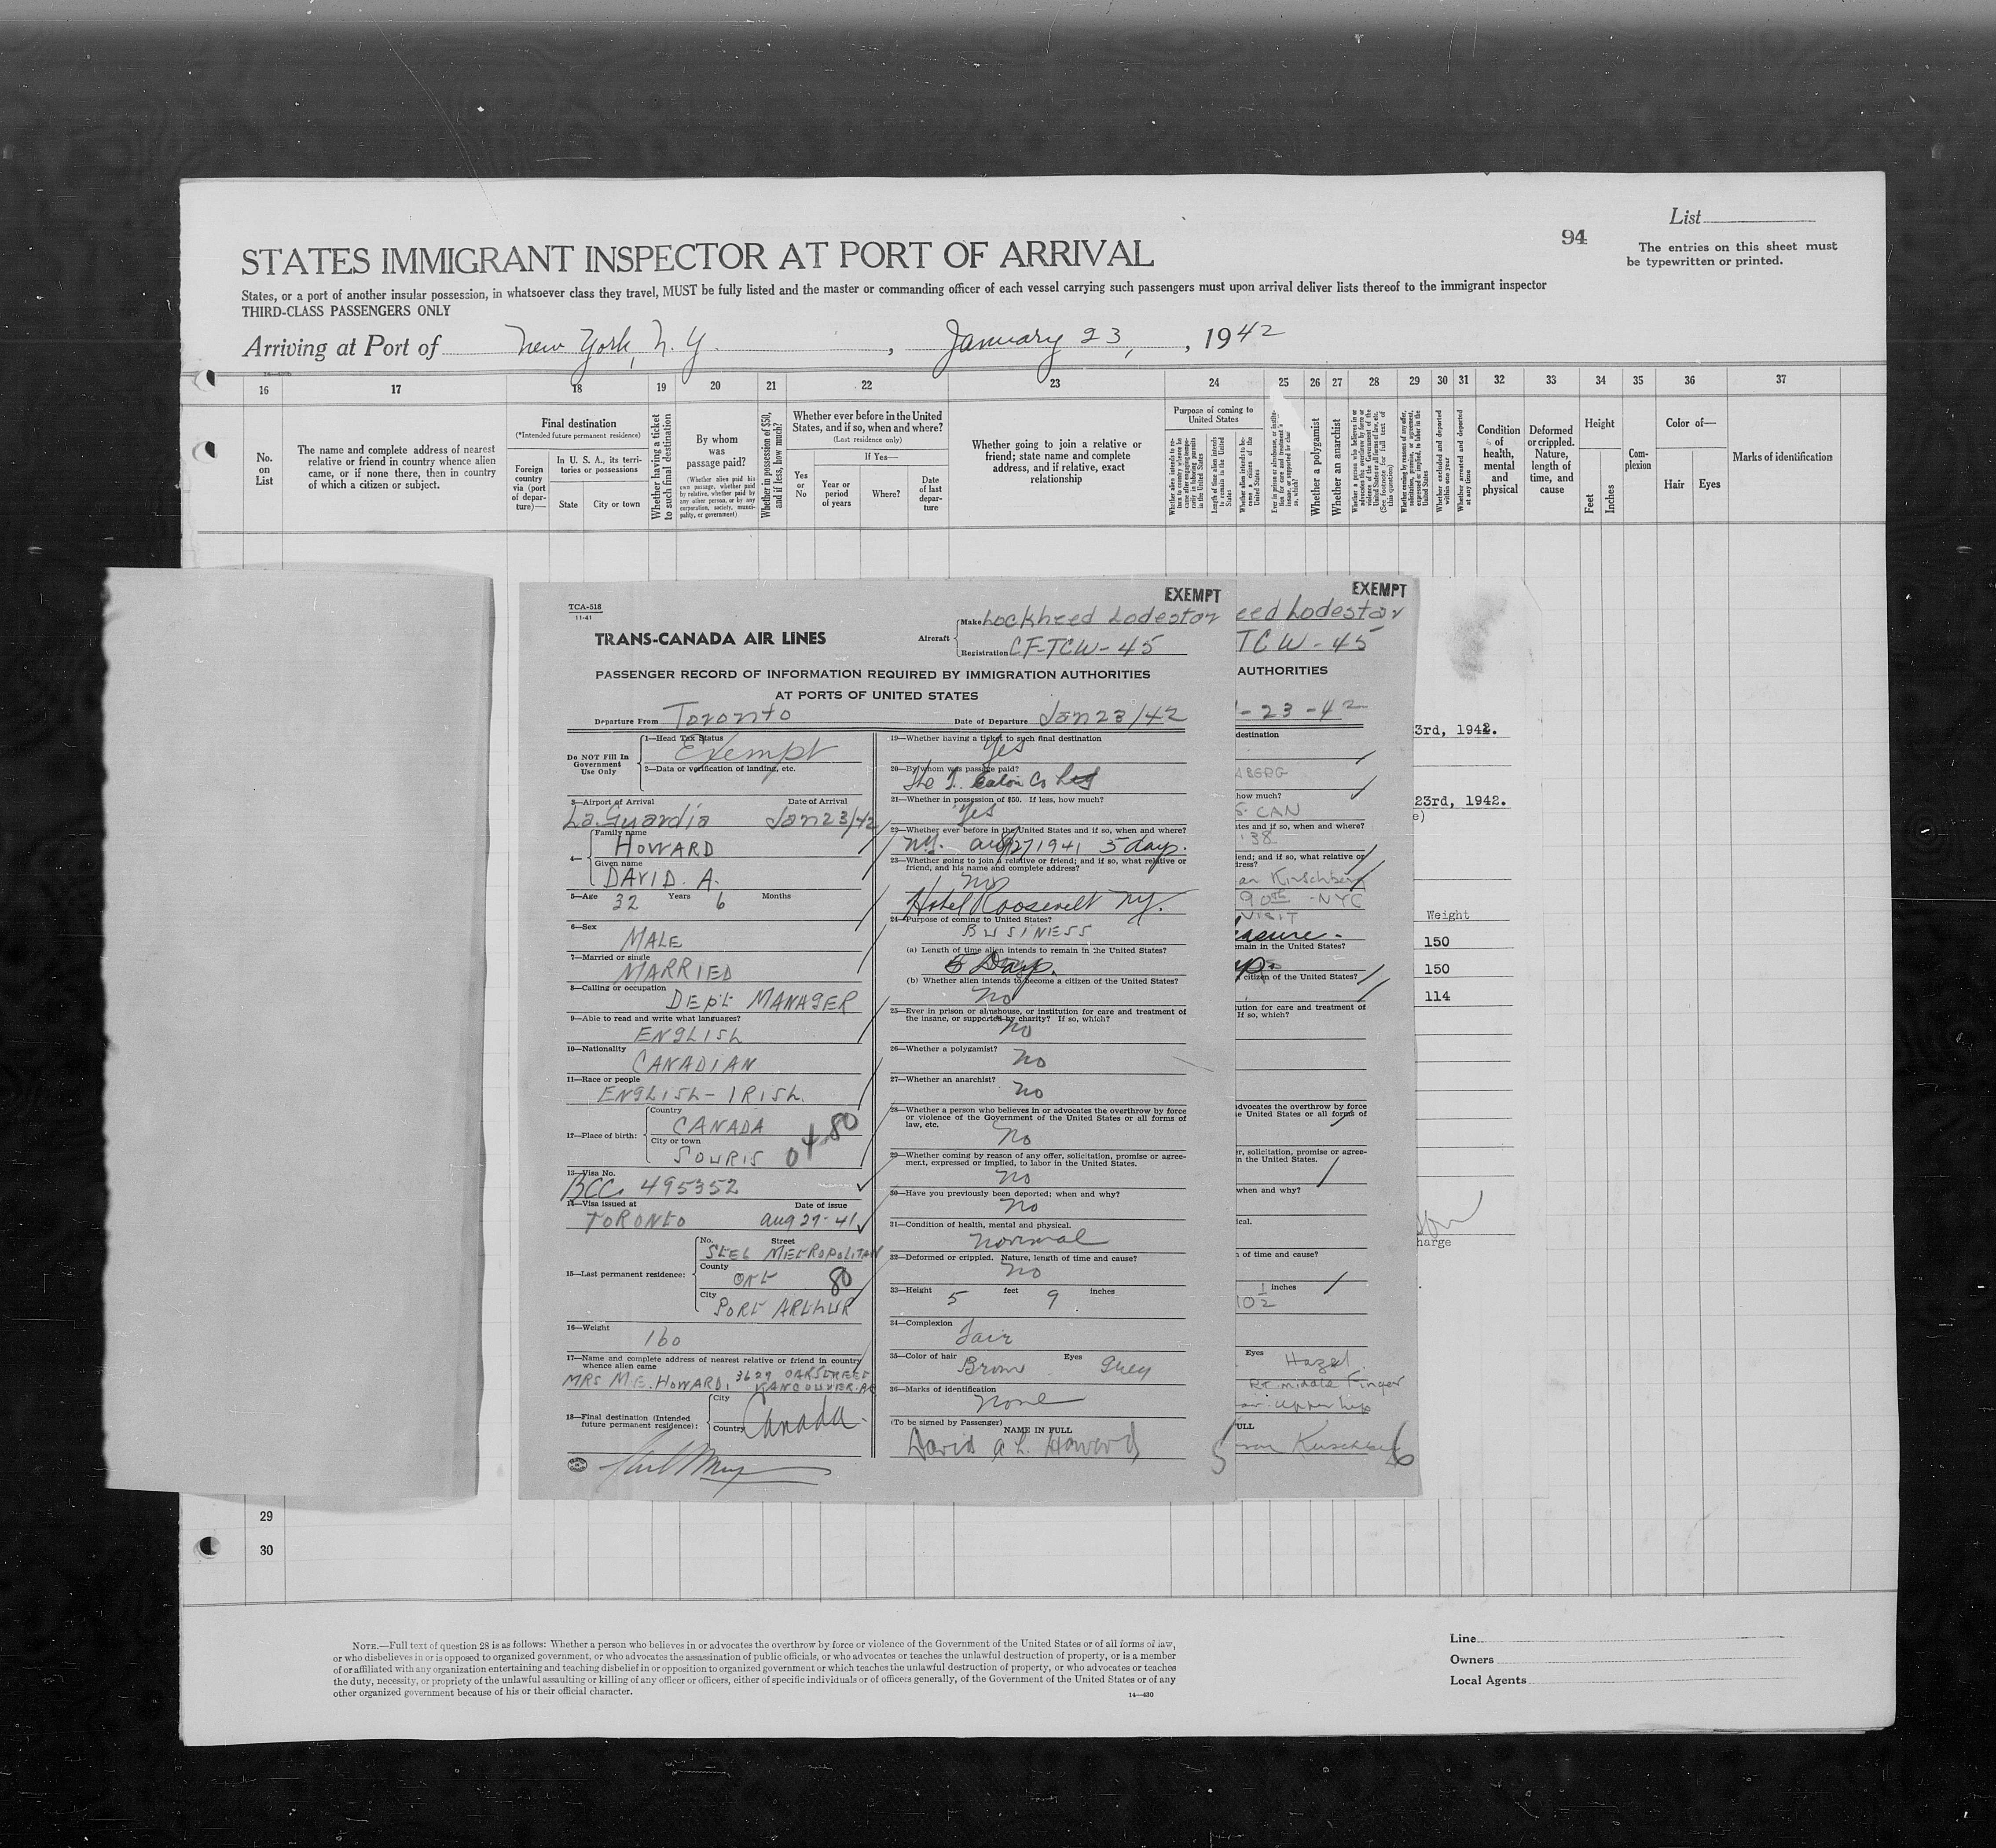 List
94
The entries on this sheet must
be typewritten or printed.
STATES IMMIGRANT INSPECTOR AT PORT OF ARRIVAL
States, or a port of another insular possession, in whatsoever class they travel, MUST be fully listed and the master or commanding officer of each vessel carrying such passengers must upon arrival deliver lists thereof to the immigrant inspector
THIRD-CLASS PASSENGERS ONLY
Arriving at Port of New York, N. Y. , January 23, , 1942
16 17 18 19 20 21 22 23 24 25 26 27 28 29 30 31 32 33 34 35 36 37
No.
on
List
The name and complete address of nearest
relative or friend in country whence alien
came, or if none there, then in country
of which a citizen or subject.
Final destination
(*Intended future permanent residence)
Foreign
country
via (port
of depar-
ture)—
In U. S. A., its terri-
tories or possessions
State
City or town
Whether having a ticket
to such final destination
By whom
was
passage paid?
(Whether alien paid his
own passage, whether paid
by relative, whether paid by
any other person, or by any
corporation, society, munici-
pality, or government)
Whether in possession of $50,
and if less, how much?
Whether ever before in the United
States, and if so, when and where?
(Last residence only)
Yes
or
No
If Yes—
Year or
period
of years
Where?
Date
of last
depar-
ture
Whether going to join a relative or
friend; state name and complete
address, and if relative, exact
relationship
Purpose of coming to
United States
Length of time alien intends
to remain in the United
States
Whether alien intends to be-
come a citizen of the
United States
Whether a polygamist
Whether an anarchist
Whether excluded and deported
within one year
Whether arrested and deported
at any time
Condition
of
health,
mental
and
physical
Deformed
or crippled.
Nature,
length of
time, and
cause
Height
Feet
Inches
Com-
plexion
Color of—
Hair
Eyes
Marks of identification
TCA-518
11-41
EXEMPT
TRANS-CANADA AIR LINES
Aircraft
Make Lockheed Lodestar
Registration CF-TCW-45
PASSENGER RECORD OF INFORMATION REQUIRED BY IMMIGRATION AUTHORITIES
AT PORTS OF UNITED STATES
Departure From Toronto
Date of Departure Jan 23/42
Do NOT Fill In
Government
Use Only
1—Head Tax Status
Exempt
2—Data or verification of landing, etc.
3—Airport of Arrival Date of Arrival
La Guardia Jan 23/42
4—
Family name
HOWARD
Given name
DAVID. A.
5—Age 32 Years 6 Months
6—Sex
MALE
7—Married or single
MARRIED
8—Calling or occupation
DEPt MANAGER
9—Able to read and write what languages?
ENGLISH
10—Nationality
CANADIAN
11—Race or people
ENGLISH - IRISH.
12—Place of birth:
Country
CANADA
City or town
SOURIS
0480
13—Visa No.
BCC. 495352
14—Visa issued at Date of issue
TORONTO Aug 27-41
15—Last permanent residence:
No. Street
METROPOLITAN
County
ONT 80
City
PORT ARTHUR
16—Weight
160
17—Name and complete address of nearest relative or friend in country
whence alien came
MRS M.E. HOWARD, 3629 OAK STREET
VANCOUVER. BC
18—Final destination (Intended
future permanent residence):
City
Country Canada
19—Whether having a ticket to such final destination
Yes
20—By whom was passage paid?
The T. Eaton Co Ltd
21—Whether in possession of $50. If less, how much?
Yes
22—Whether ever before in the United States and if so, when and where?
N.Y. Aug 27 1941 5 days.
23—Whether going to join a relative or friend; and if so, what relative or
friend, and his name and complete address?
No
Hotel Roosevelt N.Y.
24—Purpose of coming to United States?
BUSINESS
(a) Length of time alien intends to remain in the United States?
5 Days.
(b) Whether alien intends to become a citizen of the United States?
No
25—Ever in prison or almshouse, or institution for care and treatment of
the insane, or supported by charity? If so, which?
No
26—Whether a polygamist?
No
27—Whether an anarchist?
No
28—Whether a person who believes in or advocates the overthrow by force
or violence of the Government of the United States or all forms of
law, etc.
No
29—Whether coming by reason of any offer, solicitation, promise or agree-
ment, expressed or implied, to labor in the United States.
No
30—Have you previously been deported; when and why?
No
31—Condition of health, mental and physical.
Normal
32—Deformed or crippled. Nature, length of time and cause?
No
33—Height 5 feet 9 inches
34—Complexion
Fair
35—Color of hair Eyes
Brown Grey
36—Marks of identification
None
(To be signed by Passenger)
NAME IN FULL
David A L. Howard
5
EXEMPT
eed Lodestar
TCW-45
AUTHORITIES
-23-42
destination
ABERG
how much?
S. CAN
ates and if so, when and where?
'38
iend; and if so, what relative or
dress?
an Kirschberg
90th - NYC
VISIT
easure -
main in the United States?
citizen of the United States?
ution for care and treatment of
If so, which?
advocates the overthrow by force
e United States or all forms of
er, solicitation, promise or agree-
n the United States.
when and why?
ical.
n of time and cause?
1/2 inches
Eyes Hazel
Rt. middle Finger
ar upper lip
FULL
6
3rd, 1942.
23rd, 1942.
e)
Weight
150
150
114
harge
29
30
NOTE.—Full text of question 28 is as follows: Whether a person who believes in or advocates the overthrow by force or violence of the Government of the United States or of all forms of law,
or who disbelieves in or is opposed to organized government, or who advocates the assassination of public officials, or who advocates or teaches the unlawful destruction of property, or is a member
of or affiliated with any organization entertaining and teaching disbelief in or opposition to organized government or which teaches the unlawful destruction of property, or who advocates or teaches
the duty, necessity, or propriety of the unlawful assaulting or killing of any officer or officers, either of specific individuals or of officers generally, of the Government of the United States or of any
other organized government because of his or their official character.
14—430
Line
Owners
Local Agents